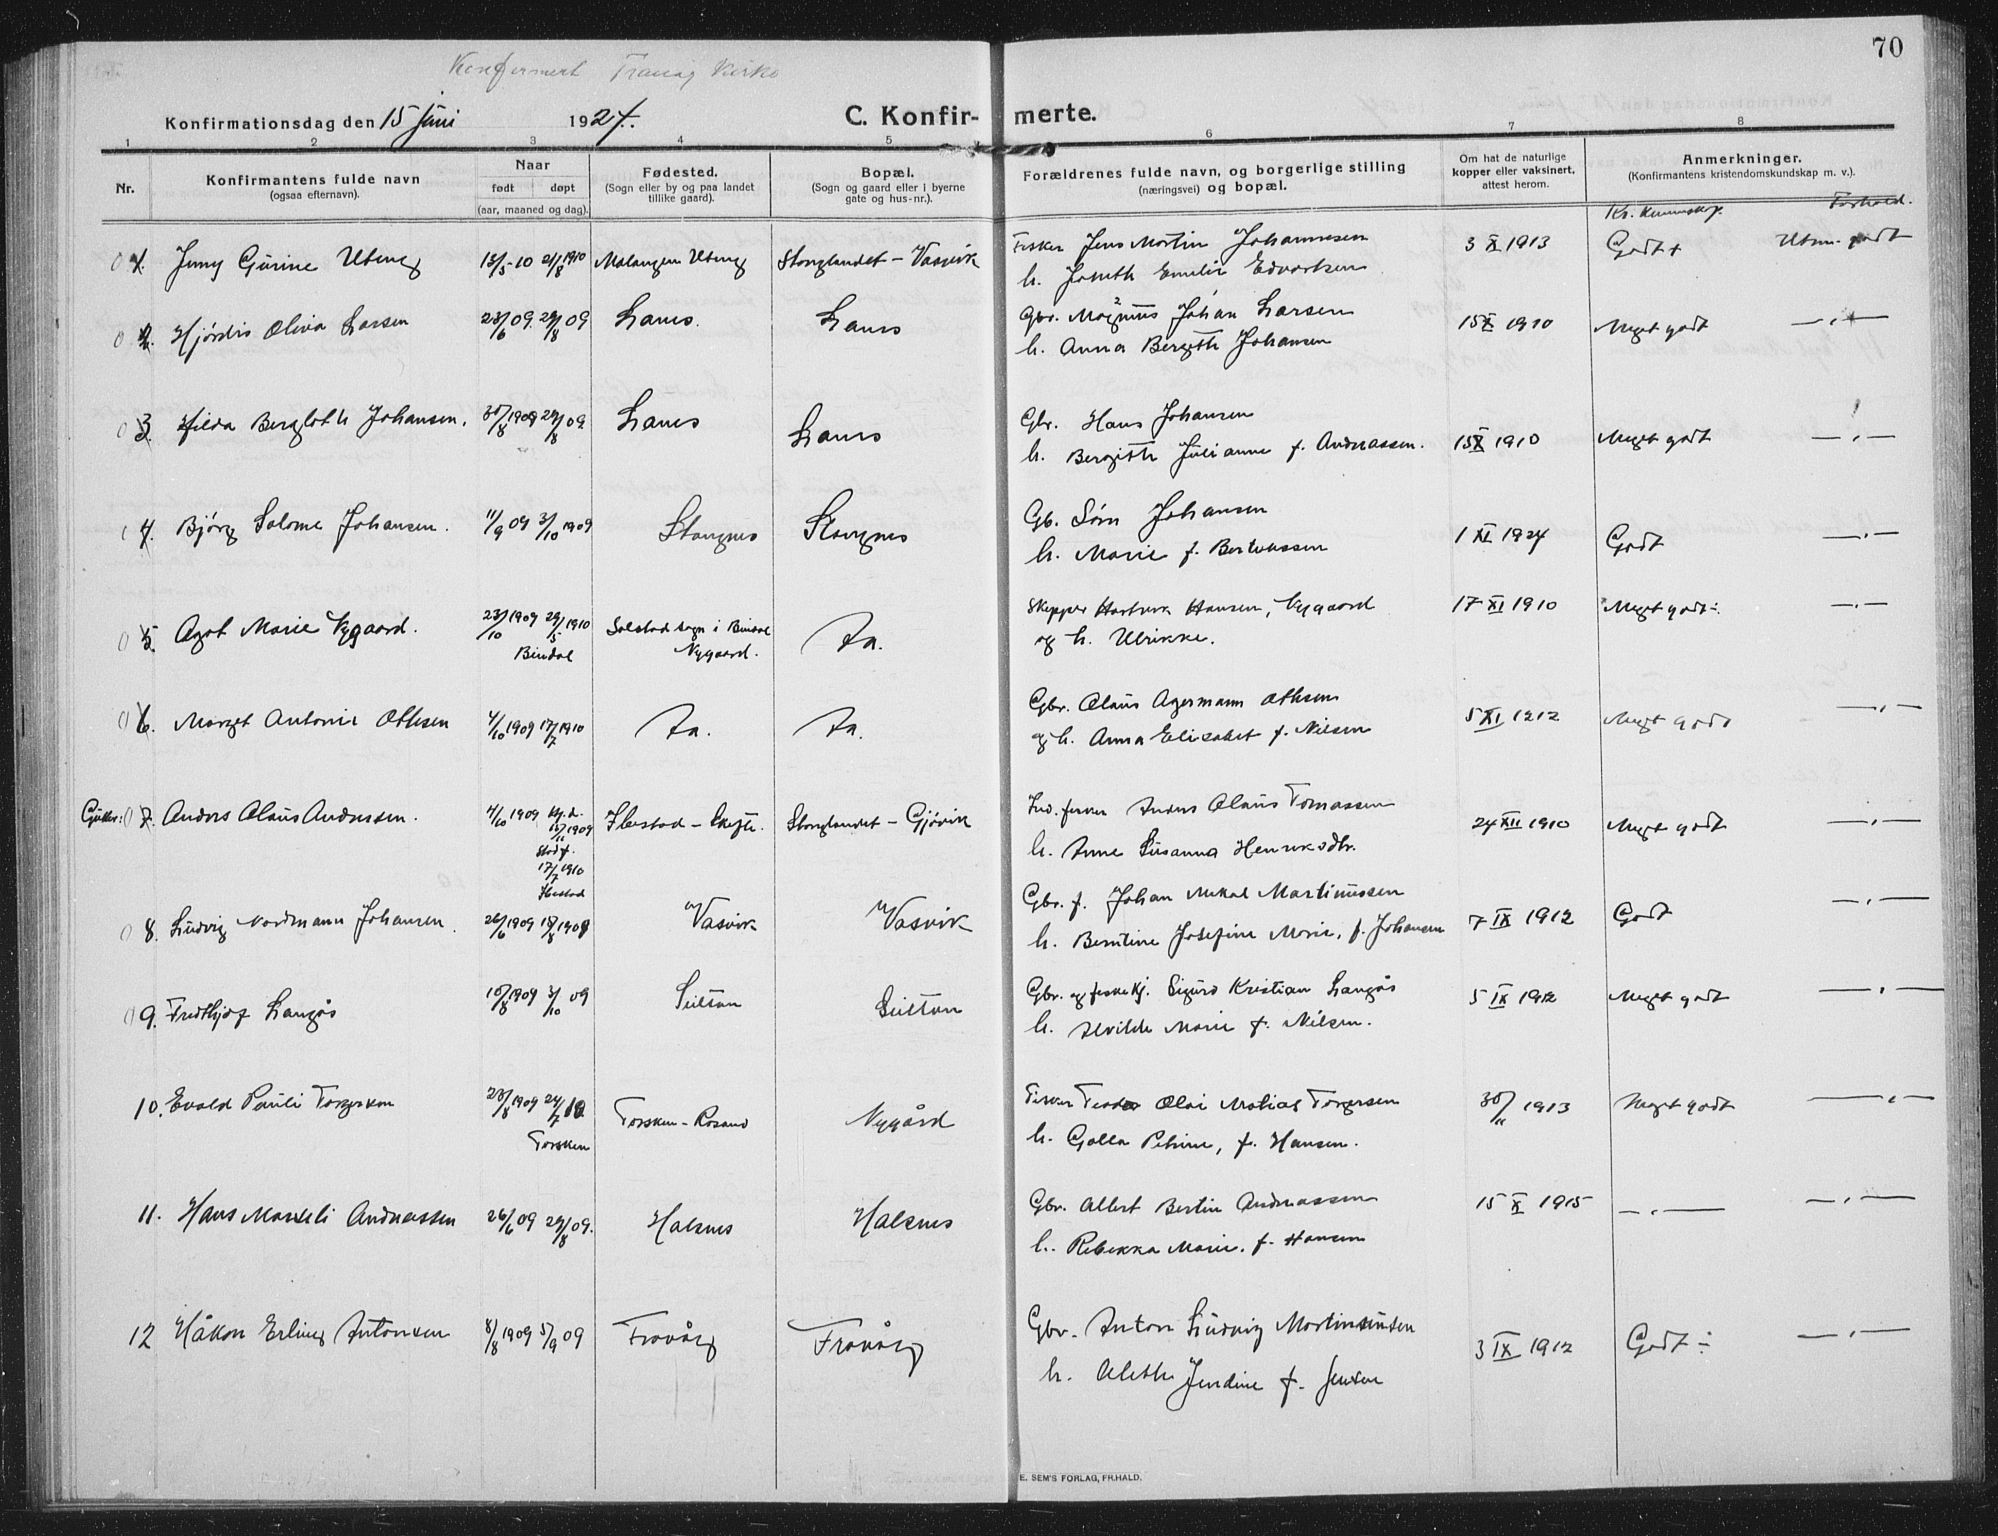 70
Konfirmert Tranøy Kirke
Konfirmationsdag den 15 Juni 1924.
C. Konfirmerte.
1 2 3 4 5 6 7 8
Nr.
Konfirmantens fulde navn
(ogsaa efternavn).
Naar
født døpt
(aar, maaned og dag).
Fødested.
(Sogn eller by og paa landet
tillike gaard).
Bopæl.
(Sogn og gaard eller i byerne
gate og hus-nr.).
Forældrenes fulde navn, og borgerlige stilling
(næringsvei) og bopæl.
Om hat de naturlige
kopper eller vaksinert,
attest herom.
Anmerkninger.
(Konfirmantens kristendomskundskap m. v.).
Kr. kunnskap. Forhold.
1. Jenny Gurine Uteng 13/5-10 21/8 1910 Malangen Uteng Stonglandet - Vasvik Fisker Jens Martin Johannesen 3 X 1913 Godt + Utm. godt
h. Emelie Edvartsen
2. Hjørdis Oliva Larsen 23/6 09. 29/8 09 Lanes. Lanes Gbr. Magnus Johan Larsen 15 X 1910 Meget godt — " —
h. Anna Bergitte Johansen
3. Hilda Bergloth Johansen. 29/8 09 Lanes Lanes Gbr. Hans Johansen 15 X 1910 Meget godt — " —
h. Bergitte Julianne f. Andreassen.
4. Bjørg Salome Johansen. 11/9 09 3/10 1909 Stangnes Stangnes Gb. Sørn Johansen 1 XI 1924 Godt — " —
h. Marie f.
5. Agot Marie Nygaard. 23/10 1909 29/5 1910 Bindal Solstad sogn i Bindal Nygaard. Aa. Skipper Hansen, Nygaard 17 XI 1910 Meget godt ÷ — " —
og h. Ulrikke.
6. Marget Antonie Othsen 4/10 1909 17/7 1910 Aa. Aa. Gbr. Olaus Agermann Othsen 5 XI 1912 Meget godt — " —
og h. Anna Elisabet f. Nilsen
Gutter: 7. Anders Olaus Andersen. 4/10 1909 Hj.d. 1909 Stadf. 17/7 1910 Ibestad Ibestad - Stonglandet - Gjøvik fisker Anders Olaus Tomassen 24 XII 1910 Meget godt — " —
h. Anne Susanna Henriksdtr.
8. Ludvig Nordmann Johansen. 26/6 1909 18/8 1909 Vasvik Vasvik Gbr. f. Johan Mikal Martinussen 7 IX 1912 Godt — " —
h. Berntine Josefine Marie, f. Johansen
9. Fridthjof Langås 10/8 1909 3/10 09 Gbr. og fiskekj. Sigurd Kristian Langås 5 IX 1912 Meget godt — " —
h. Alvilde Marie f. Nilsen.
10. Evald Pauli Torgersen 23/8 1909 24/7 10 Torsken Torsken - Nygård Fisker Teodor Olai Matias Torgersen 30/11 1913 Meget godt — " —
h. Golla Petrine, f. Hansen.
11. Hans Marseli Andreassen 26/6 09 29/8 09. Halsnes Halsnes Gbr. Albert Bertin Andreassen 15 X 1915 — " — — " —
h. Rebekka Marie. f. Hansen
12 Håkon Erling Antonsen 8/8 1909 5/9 09 Frovåg Frovåg Gbr. Anton Ludvig Martinsen 3 IX 1912 Godt ÷ — " —
h. Aleth Jendine f. Jensen
E. SEM'S FORLAG, FR.HALD.